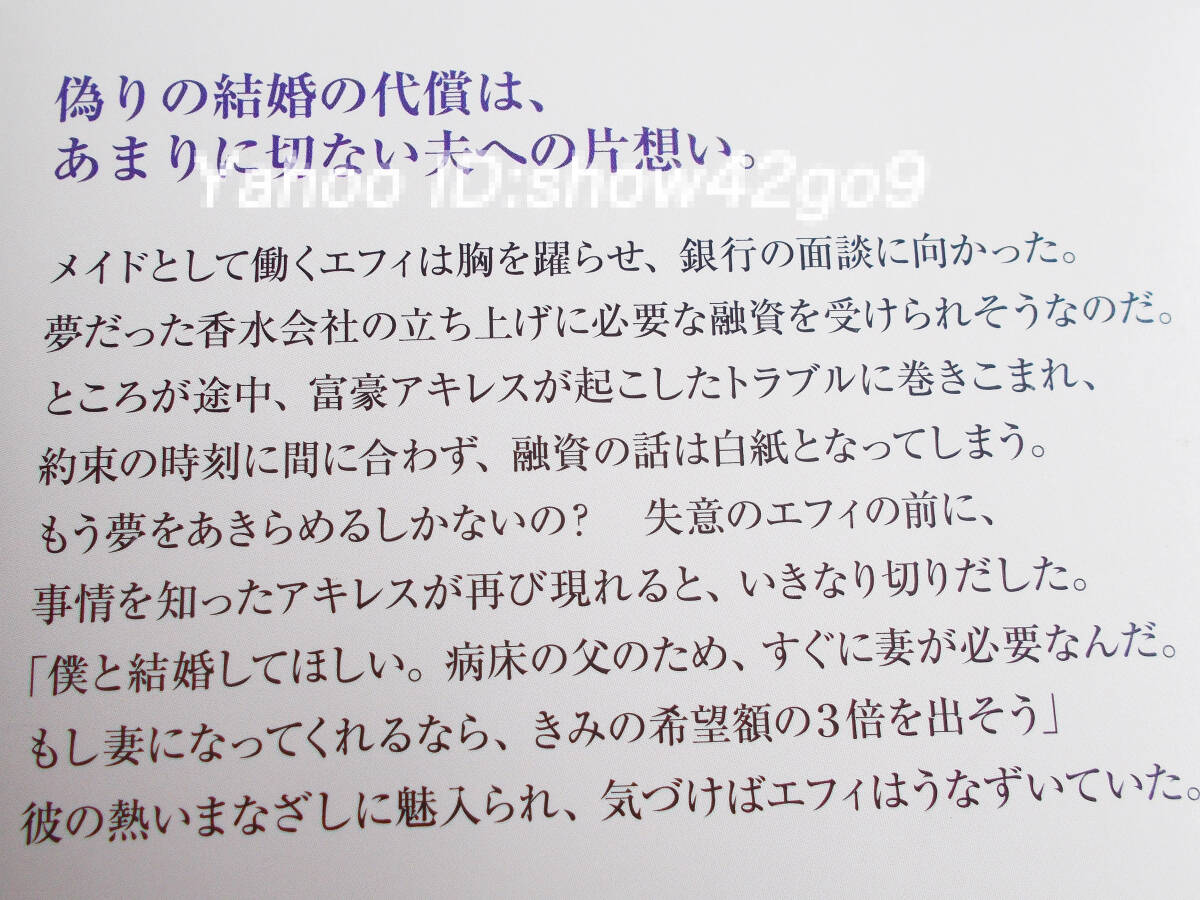 偽りの結婚の代償は、
あまりに切ない夫への片想い。
Yahoo ID:show42go9
メイドとして働くエフィは胸を躍らせ、銀行の面談に向かった。
夢だった香水会社の立ち上げに必要な融資を受けられそうなのだ。
ところが途中、富豪アキレスが起こしたトラブルに巻きこまれ、
約束の時刻に間に合わず、融資の話は白紙となってしまう。
もう夢をあきらめるしかないの？　失意のエフィの前に、
事情を知ったアキレスが再び現れると、いきなり切りだした。
「僕と結婚してほしい。病床の父のため、すぐに妻が必要なんだ。
もし妻になってくれるなら、きみの希望額の3倍を出そう」
彼の熱いまなざしに魅入られ、気づけばエフィはうなずいていた。